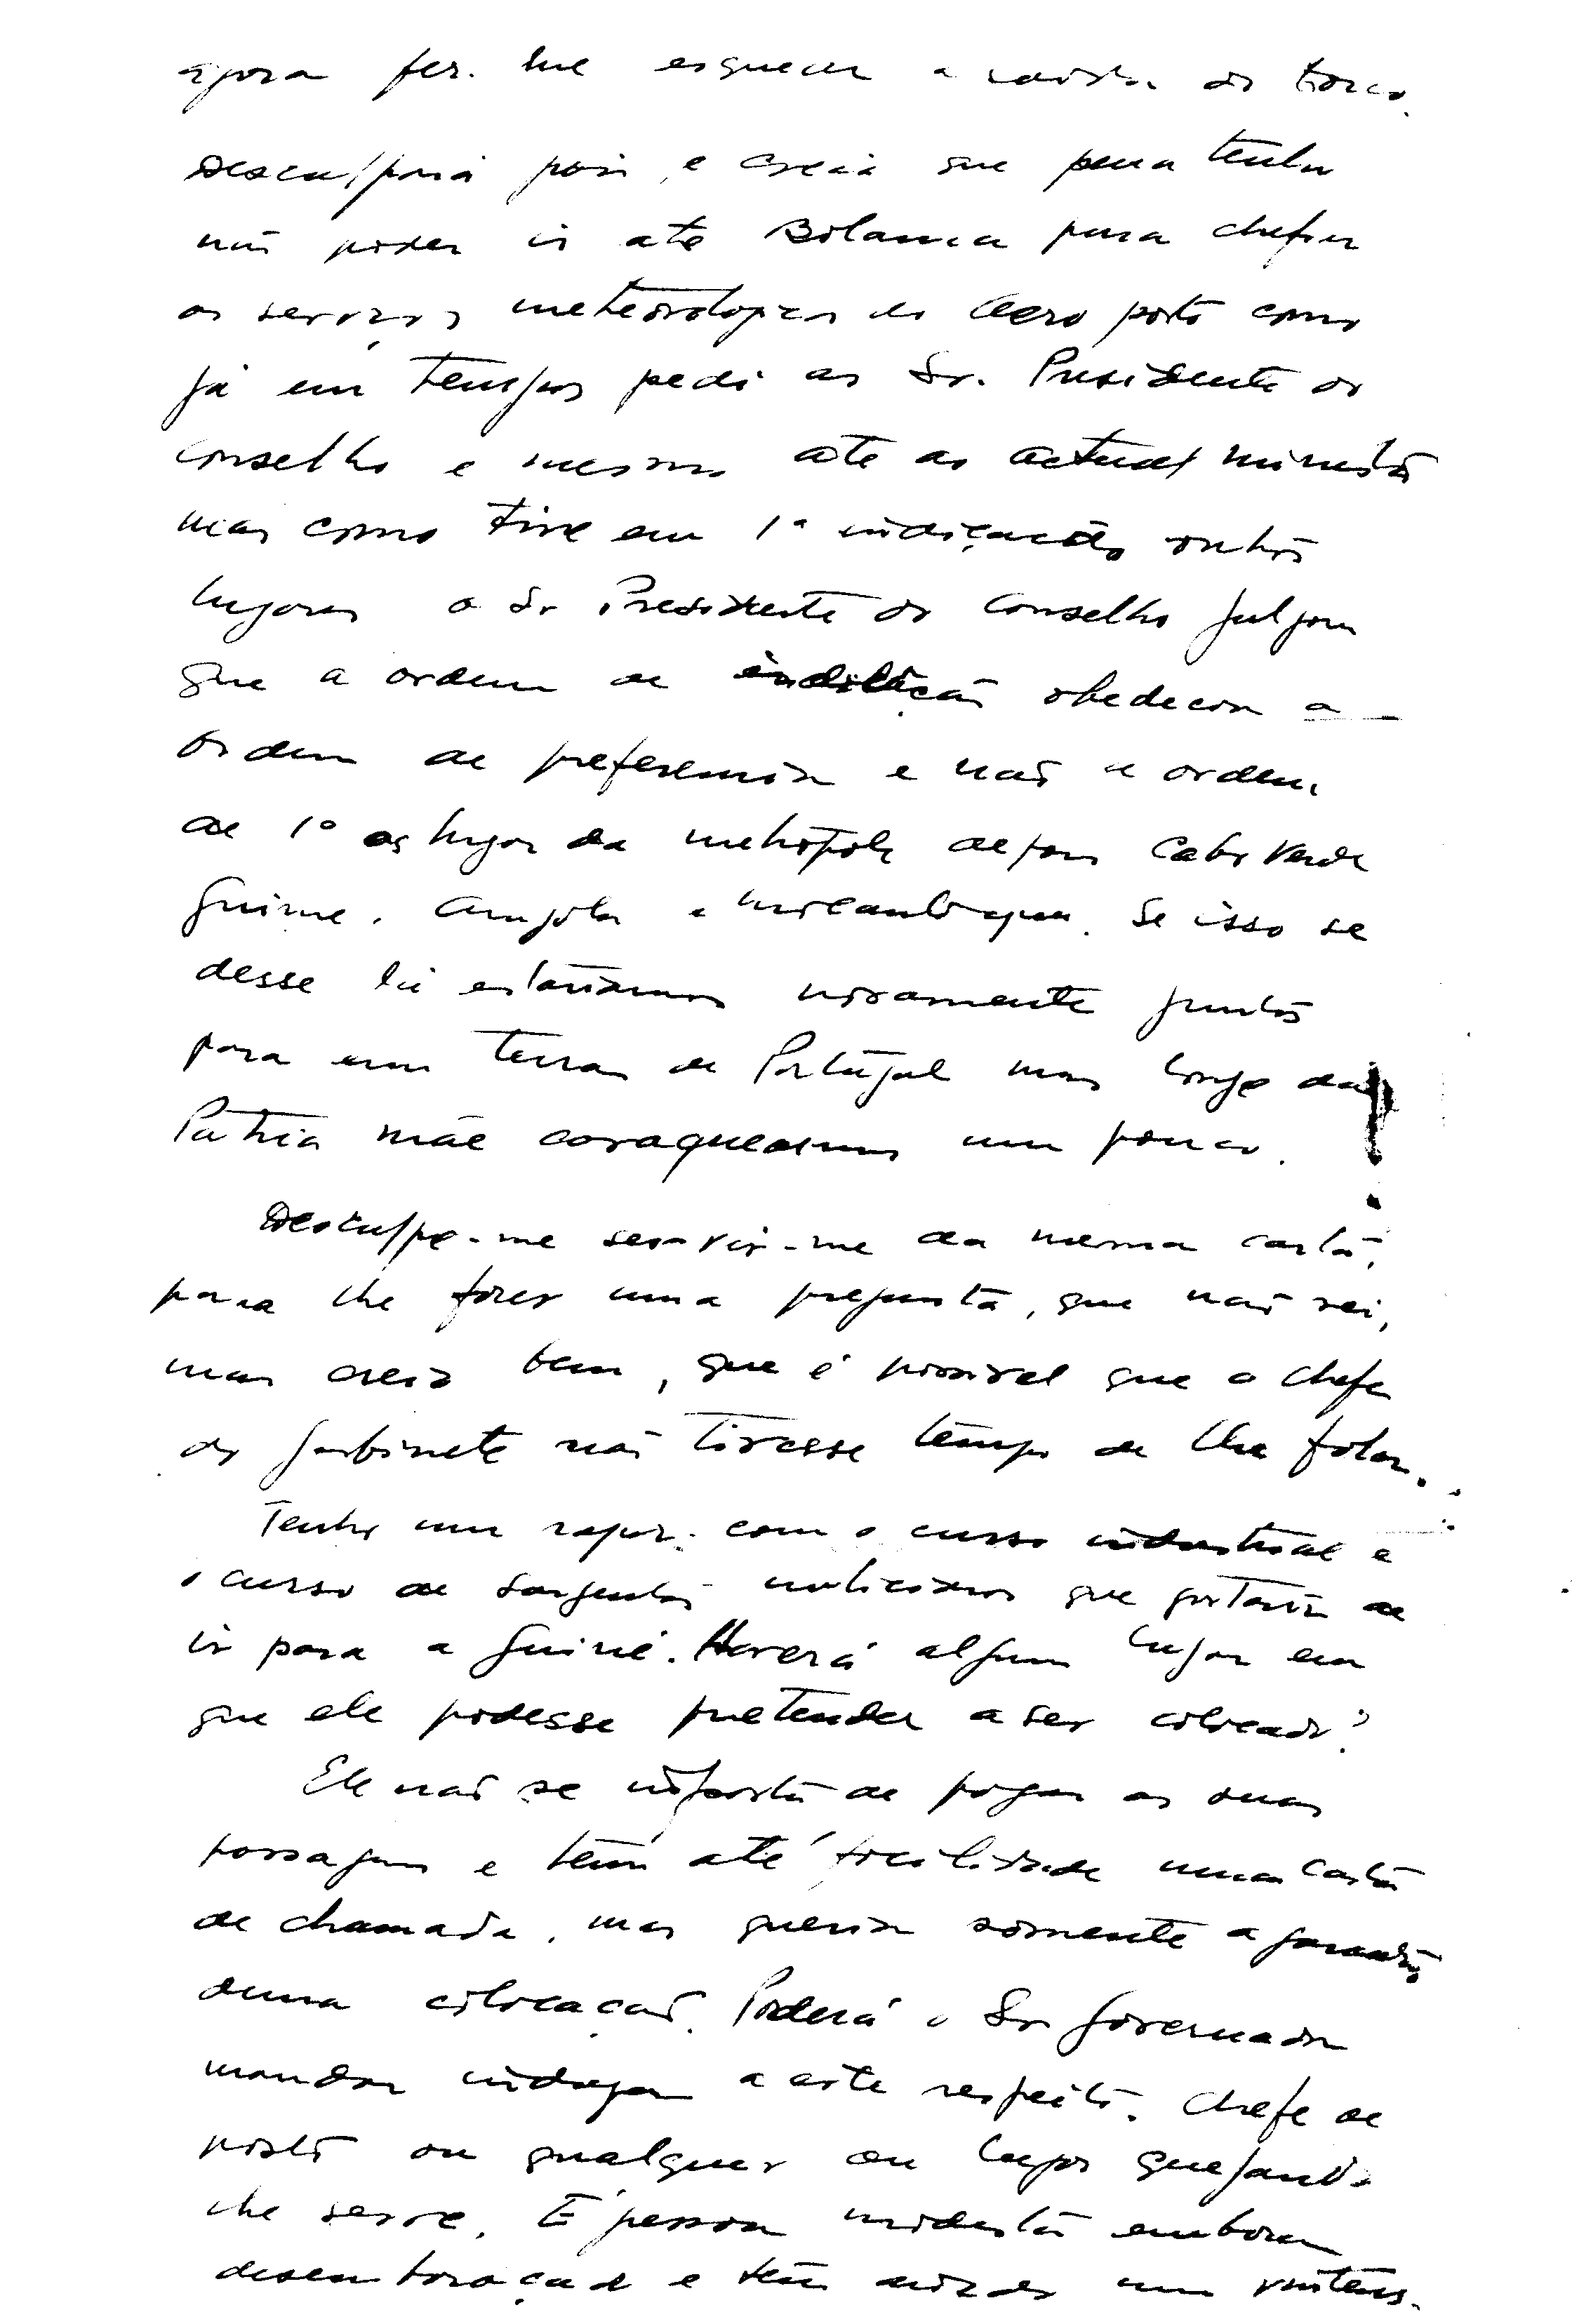 agora fez-me esquecer a
Desculpará pois, e creia que pena tenho
não poder ir até Bolama para chefiar
os serviços meteorologicos do Aero porto como
já em tempos pedi ao Sr. Presidente do
Conselho e mesmo até ao actual ministro
mas como tive em 1ª indicação outros
lugares o Sr Presidente do Conselho julgou
que a ordem de indicação obedecia a
ordem de preferencia e não a ordem
de 1º os lugar da metropole depois Cabo Verde
Guiné, Angola e Moçambique. Se isso se
desse lá estariamos novamente juntos
para em terras de Portugal mas longe da
Patria mãe cavaquearmos um pouco.
Desculpe-me servir-me da mesma carta,
para lhe fazer uma pregunta, que não sei,
mas creio bem, que é possivel que o chefe
do Gabinete não tivesse tempo de lhe falar.
Tenho um rapaz com o curso industrial e
o curso de sargentos milicianos que gostaria de
ir para a Guiné. Haverá algum lugar em
que ele podesse pretender a ser colocado?
Ele não se importa de pagar as suas
passagens e tem até facilidade numa carta
de chamada, mas queria somente a garantia
duma colocação. Poderá o Sr Governador
mandar indagar a este respeito. Chefe de
posto ou qualquer ou lugar quejando
lhe serve. É pessoa modesta embora
desembaraçada e tem